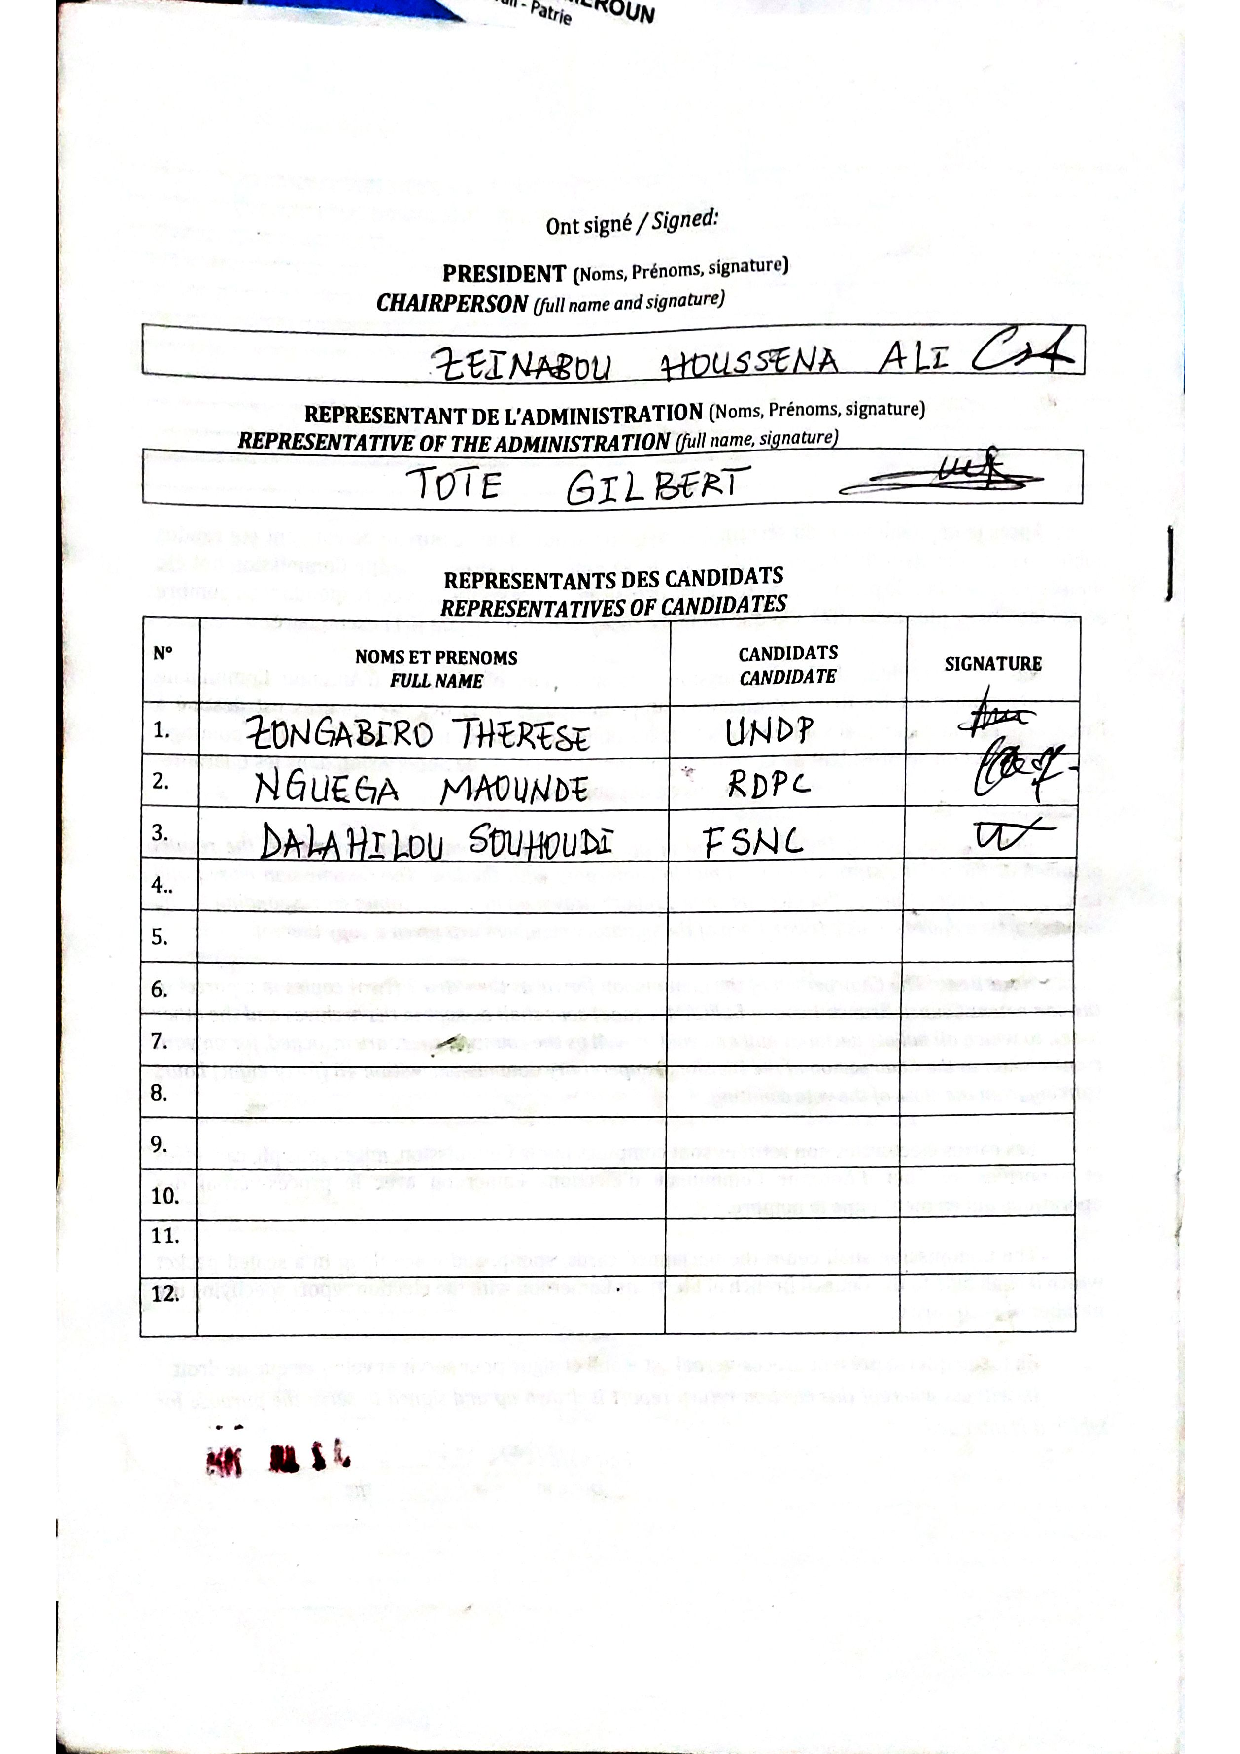 - Patrie
Ont signé / Signed:
PRESIDENT (Noms, Prénoms, signature)
CHAIRPERSON (full name and signature)
ZEINABOU HOUSSENA ALI
REPRESENTANT DE L'ADMINISTRATION (Noms, Prénoms, signature)
REPRESENTATIVE OF THE ADMINISTRATION (full name, signature)
TOTE GILBERT
REPRESENTANTS DES CANDIDATS
REPRESENTATIVES OF CANDIDATES
N° NOMS ET PRENOMS FULL NAME CANDIDATS CANDIDATE SIGNATURE
1. ZONGABIRO THERESE UNDP
2. NGUEGA MAOUNDE RDPC
3. DALAHILOU SOUHOUDI FSNC
4..
5.
6.
7.
8.
9.
10.
11.
12.